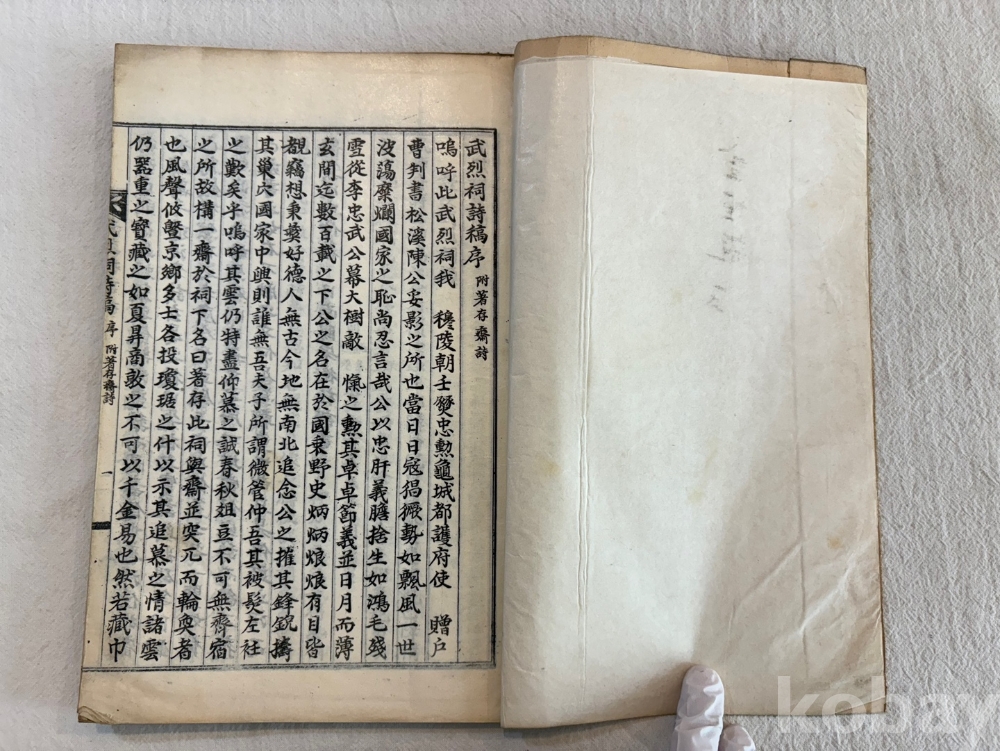 武烈祠詩稿序 附著存齋詩
嗚呼此武烈祠我 穆陵朝壬燹忠勲龜城都護府使 贈户
曹判書松溪陳公妥影之所也當日日寇猖獗勢如飄風一世
波蕩糜爛國家之恥尚忍言哉公以忠肝義膽捨生如鴻毛殘
雪從李忠武公幕大樹敵 愾之勲其卓卓節義並日月而薄
玄間迄數百載之下公之名在於國乗野史炳炳烺烺有目皆
覩竊想秉彜好德人無古今地無南北追念公之摧其鋒鋭擣
其巢穴國家中興則誰無吾夫子所謂微管仲吾其被髮左衽
之歎矣乎嗚呼其雲仍特盡仰慕之誠春秋俎豆不可無齊宿
之所故構一齋於祠下名曰著存此祠與齋並突兀而輪奐者
也風聲攸曁京鄉多士各投瓊琚之什以示其追慕之情諸雲
仍器重之寶藏之如夏昇商敦之不可以千金易也然若藏巾
武烈祠詩稿 序 附著存齋詩 一
kobay